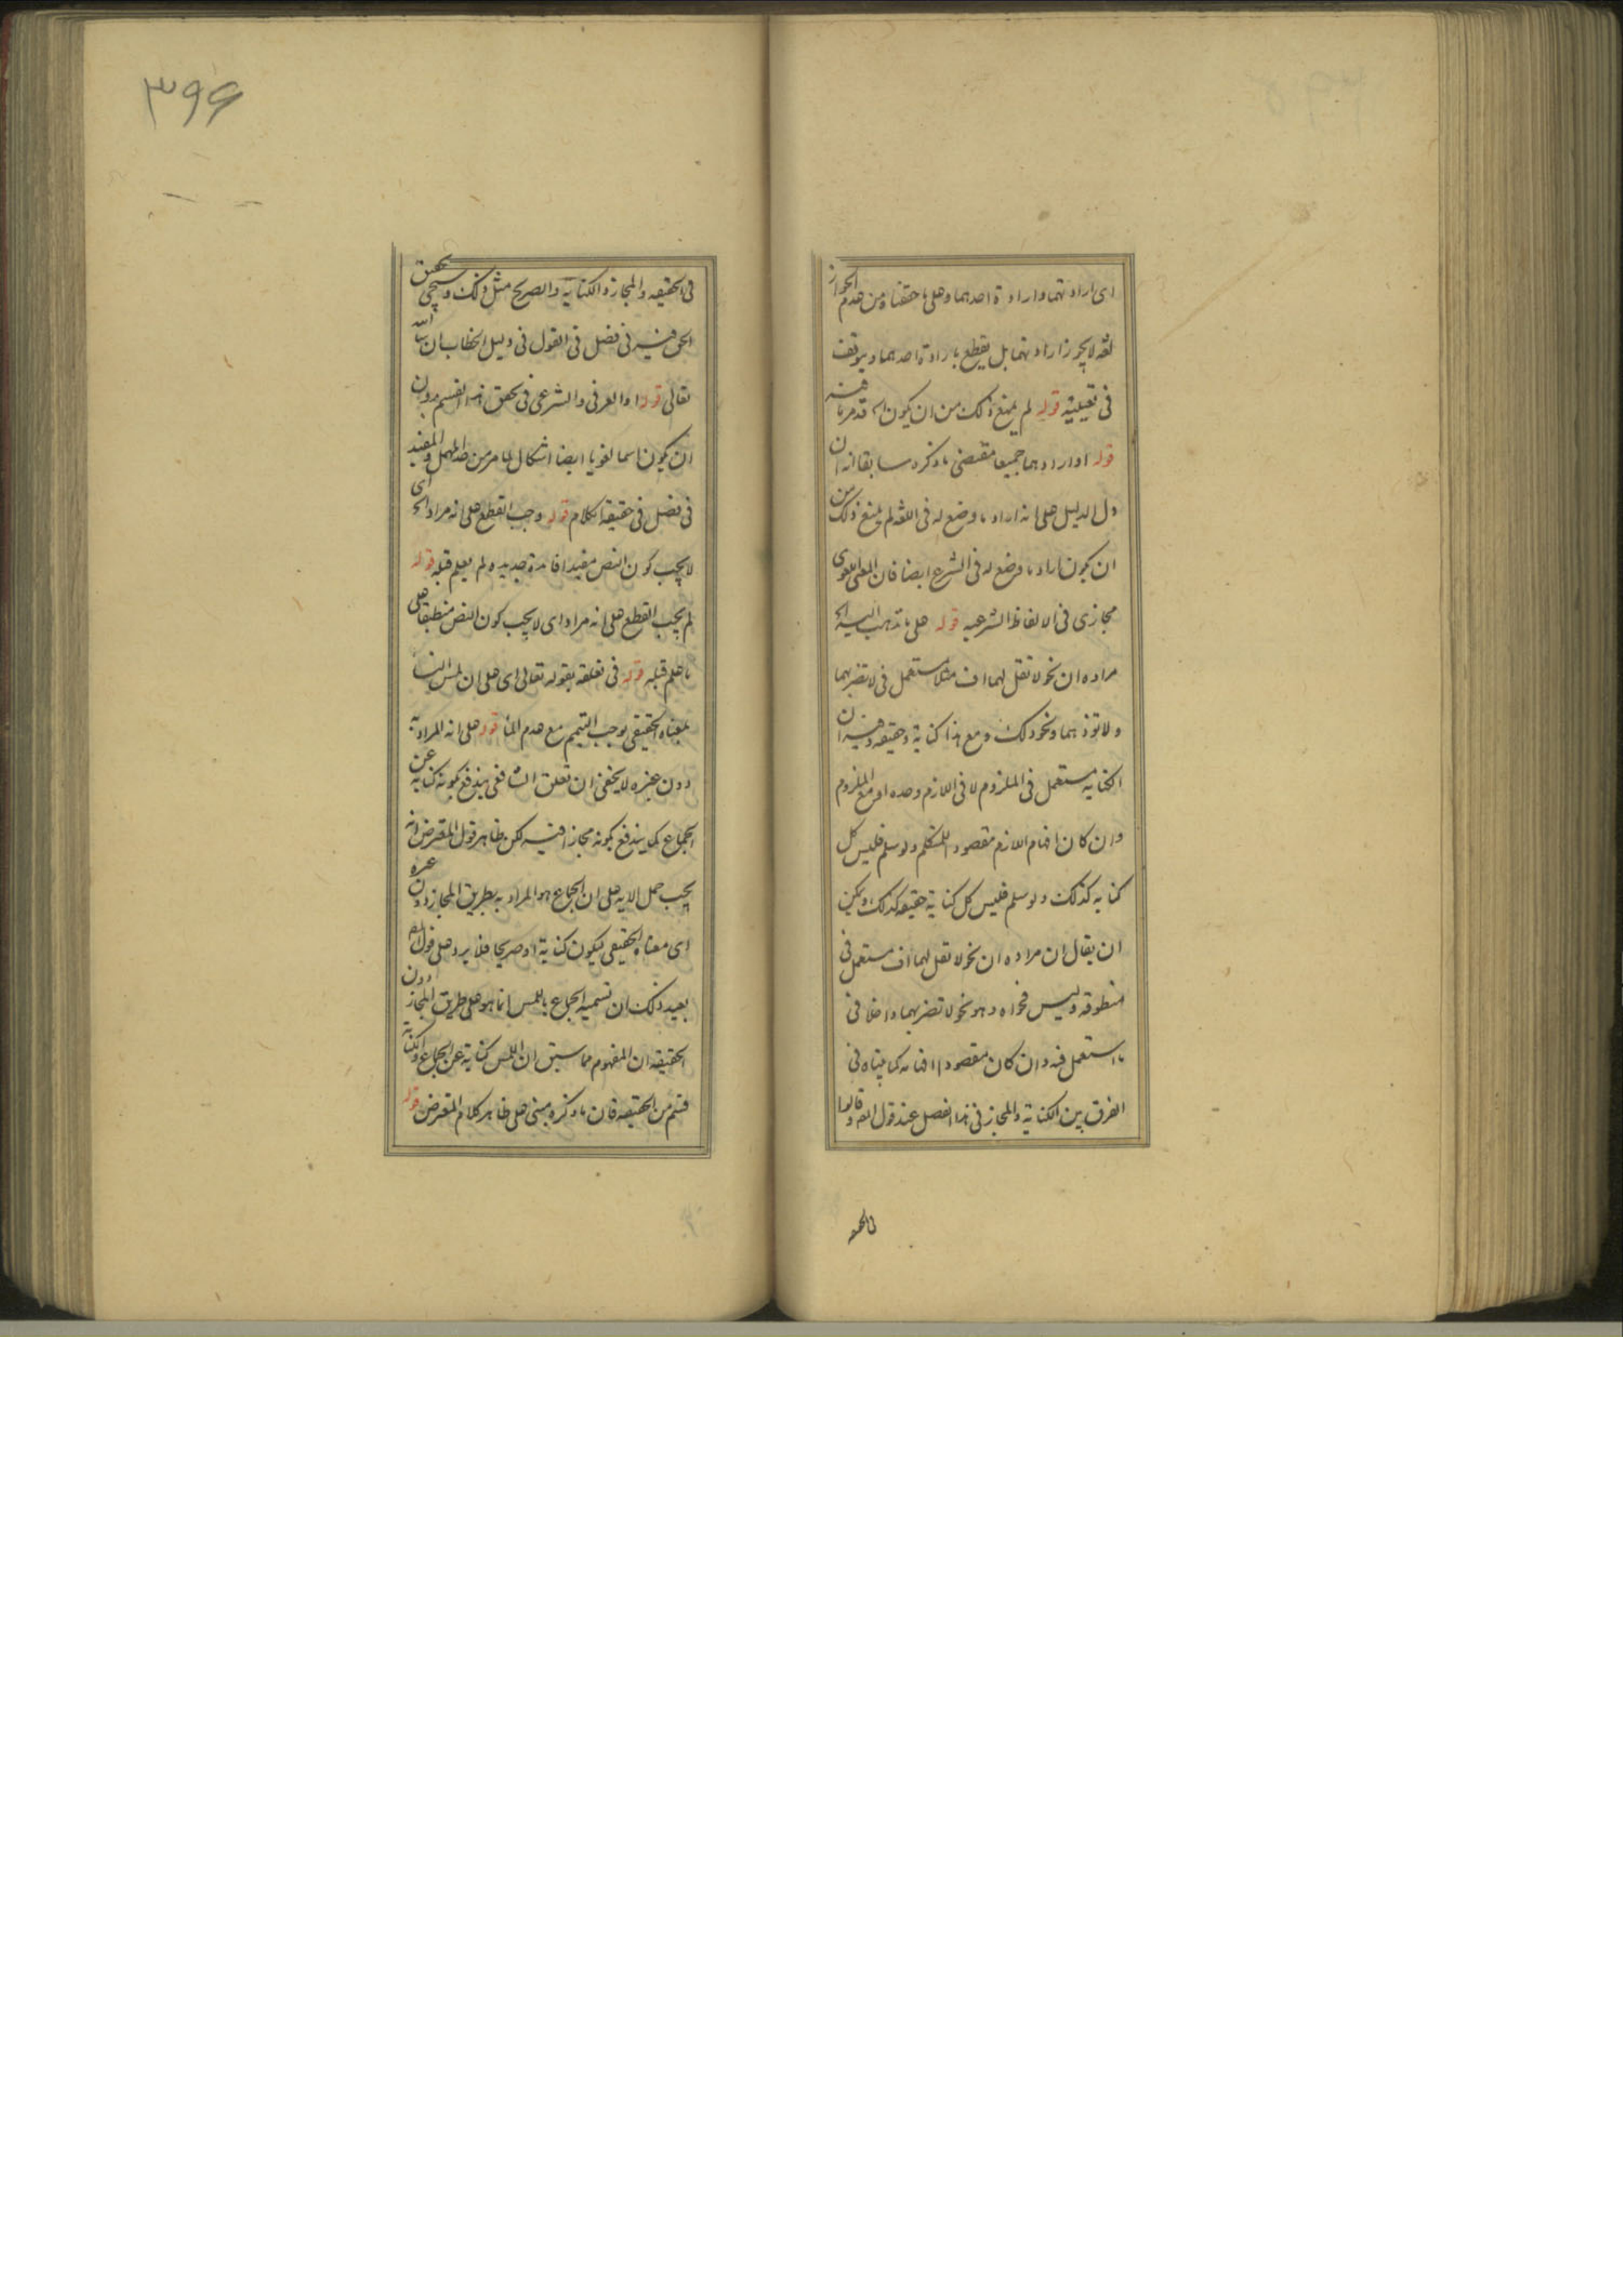 اى ارادتهما وارادة احدهما وعلى ما حققناه من عدم الجواز
لغة لا يجوز ارادتهما بل يقطع بارادة احدهما ويتوقف
فى تعيينه قوله لم يمنع ذلك من ان يكون الخ قد مر ما فيه
قوله او ارادهما جميعا مقتضى ما ذكره سابقا انه ان
دل الدليل على انه اراد ما وضع له فى اللغة لم يمنع ذلك من
ان يكون اراد ما وضع له فى الشرع ايضا فان المعنى اللغوى
مجازى فى الالفاظ الشرعية قوله على ما نذهب اليه الخ
مراده ان نحو لا تقل لهما اف مثلا مستعمل فى لا تضربهما
ولا تؤذهما ونحو ذلك ومع هذا كناية وحقيقة وفيه ان
الكناية مستعمل فى الملزوم لا فى اللازم وحده او مع الملزوم
وان كان افهام اللازم مقصود المتكلم ولو سلم فليس كل
كناية كذلك ولو سلم فليس كل كناية حقيقة كذلك ويمكن
ان يقال ان مراده ان نحو لا تقل لهما اف مستعمل فى
منطوقه وليس فحواه وهو نحو لا تضربهما داخلا فى
ما استعمل فيه وان كان مقصودا افهامه كما بيناه فى
الفرق بين الكناية والمجاز فى هذا الفصل عند قول المص وقالوا
فى الحقيقه
٣٩۶
فى الحقيقة والمجاز والكناية والصريح مثل ذلك وسيجئ تحقيق
الحق فيه فى فصل فى القول فى دليل الخطاب ان شاء الله
تعالى قوله او العرفى والشرعى فى تحقق هذا القسم بدون
ان يكون اسما لغويا ايضا اشكال لما مر من حد المهمل والمفيد
فى فصل فى حقيقة الكلام قوله وجب القطع على انه مراد الخ اى
لا يجب كون النص مفيدا فائدة جديدة لم يعلم قبله قوله
لم يجب القطع على انه مراد اى لا يجب كون النص منطبقا على
ما علم قبله قوله فى تعلقه بقوله تعالى اى على ان لمس النساء
بمعناه الحقيقى يوجب التيمم مع عدم الماء قوله على انه المراد به
دون غيره لا يخفى ان تعلق الشافعى يندفع بكونه كناية عن
الجماع كما يندفع بكونه مجازا فيه لكن ظاهر قول المعترض انه
يجب حمل الاية على ان الجماع هو المراد به بطريق المجاز دون غيره
اى معناه الحقيقى ليكون كناية او صريحا فلا يرد على قول المص
بعيد ذلك ان تسمية الجماع باللمس انما هو على طريق المجاز دون
الحقيقة ان المفهوم مما سبق ان اللمس كناية عن الجماع والكناية
قسم من الحقيقة فان ما ذكره مبنى على ظاهر كلام المعترض قوله